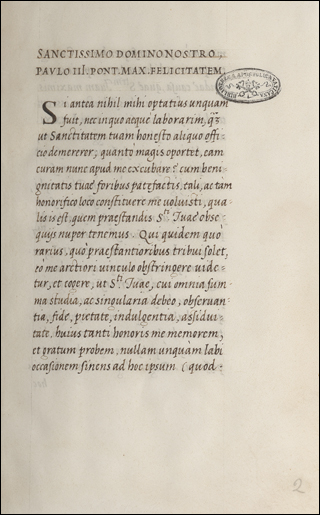 SANCTISSIMO DOMINO NOSTRO
PAVLO III. PONT. MAX. FELICITATEM
Si antea nihil mihi optatius unquam
fuit, nec in quo aeque laborarim, q̃
ut Sanctitatem tuam honesto aliquo offi-
cio demererer; quanto magis oportet, eam
curam nunc apud me excubare? cum beni-
gnitatis tuae foribus patefactis, tali, ac tam
honorifico loco constituere me uoluisti, qua-
lis is est, quem praestandis S.ti Tuae obse-
quijs nuper tenemus. Qui quidem quo
rarius, quo praestantioribus tribui solet,
eo me arctiori uinculo obstringere uide-
tur, et cogere, ut S.ti Tuae, cui omnia sum-
ma studia, ac singularia debeo, obseruan-
tia, fide, pietate, indulgentia, assidui-
tate, huius tanti honoris me memorem,
et gratum probem, nullam unquam labi
occasionem sinens ad hoc ipsum. (quod
2